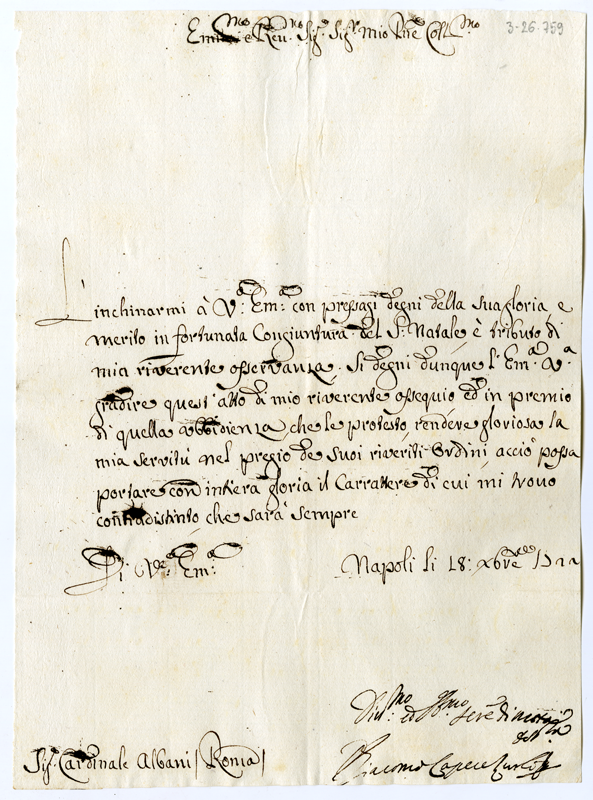 Em.mo e Rev.mo Sig.r Sig.r mio P.rne Coll.mo
3-26.759
L'inchinarmi à V.a Em.a con pressagi degni della sua gloria, e
merito in fortunata Congiuntura del S. Natale è tributo di
mia riverente osservanza. Si degni dunque l'Em.a V.a
gradire quest'atto di mio riverente ossequio ed in premio
di quella obbidienza, che le protesto, rendere gloriosa la
mia servitù nel pregio de suoi riveriti Ordini acciò possa
portare con intiera gloria il Carattere di cui mi trovo
contradistinto che sarà sempre
Di V.ra Em.a
Napoli li 18: Xbre
Sig.r Cardinale Albani (Roma)
Giacomo Capece